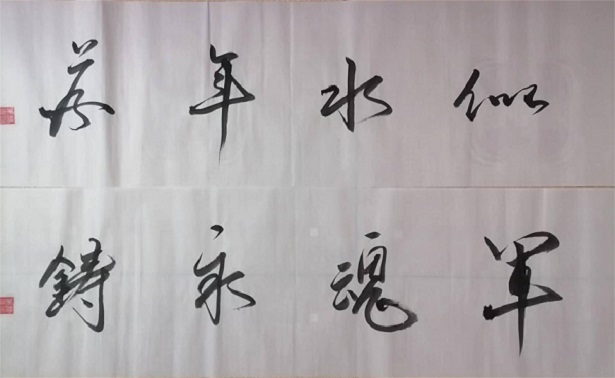 似水年華
軍魂永鑄